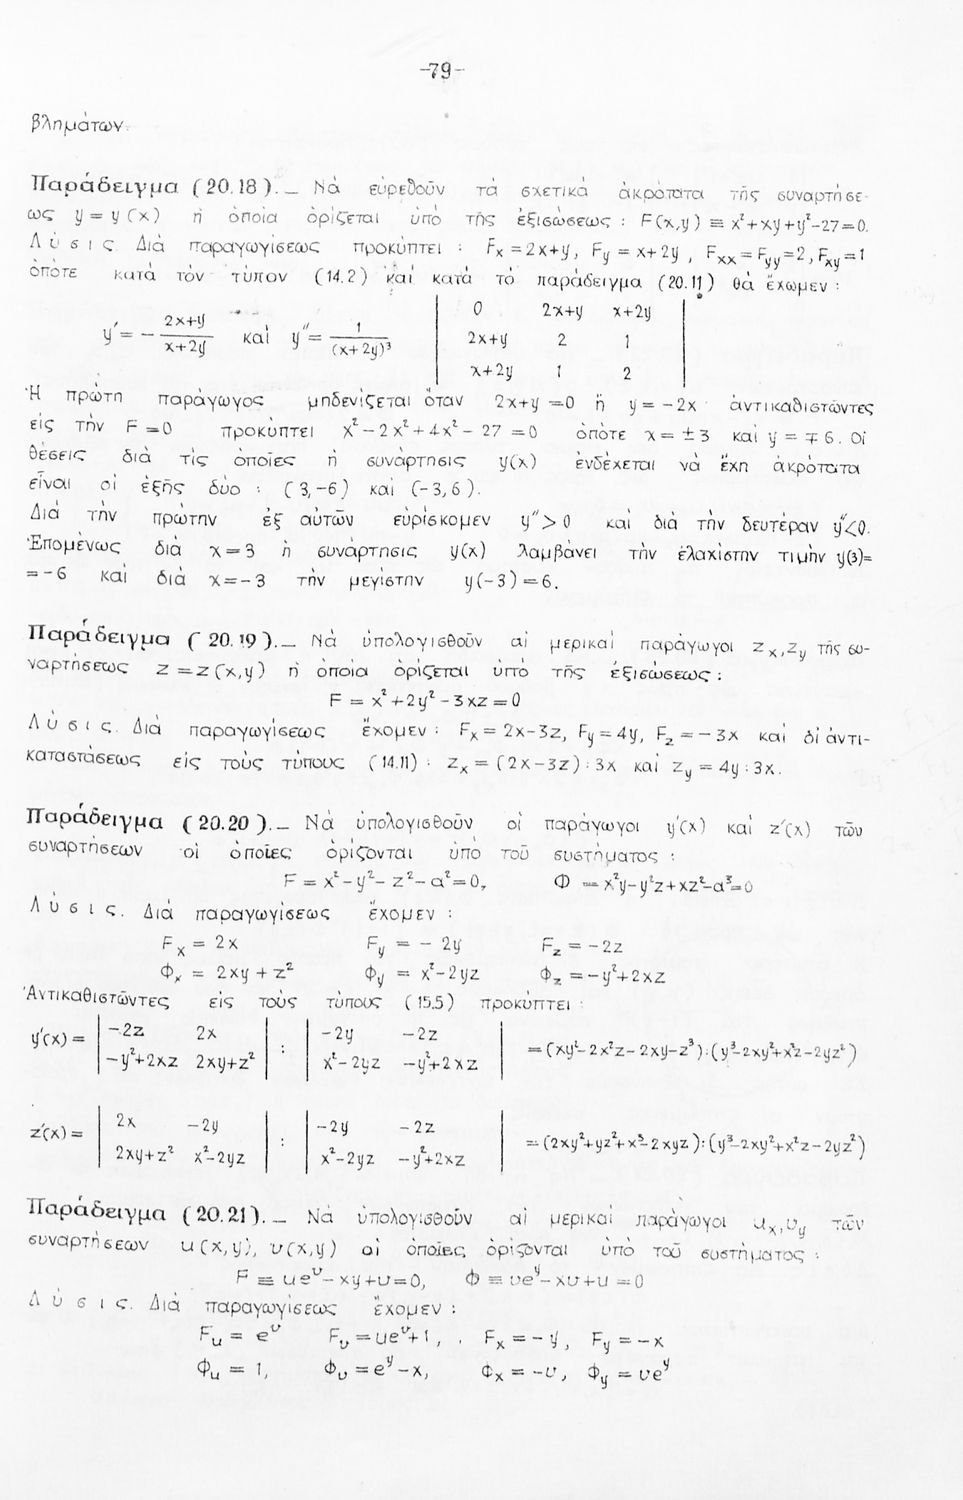 -79-
βλημάτων.
Παράδειγμα (20.18)._ Νά εὑρεθοῦν τά σχετικά ἀκρότατα τῆς συναρτήσε-
ως y = y(x) ἡ ὁποία ὁρίζεται ὑπό τῆς ἐξισώσεως : F(x,y) ≡ x²+xy+y²-27=0.
Λύσις. Διά παραγωγίσεως προκύπτει : Fx = 2x+y, Fy = x+2y , Fxx = Fyy = 2, Fxy = 1
ὁπότε κατά τόν τύπον (14.2) καί κατά τό παράδειγμα (20.11) θά ἔχωμεν :
y' = - (2x+y)/(x+2y) καί y'' = 1/(x+2y)³ | 0 2x+y x+2y |
| 2x+y 2 1 |
| x+2y 1 2 |
Ἡ πρώτη παράγωγος μηδενίζεται ὅταν 2x+y =0 ἤ y = -2x ἀντικαθιστῶντες
εἰς τήν F =0 προκύπτει x² - 2x² + 4x² - 27 =0 ὁπότε x = ±3 καί y = ∓6. Οἱ
θέσεις διά τίς ὁποῖες ἡ συνάρτησις y(x) ἐνδέχεται νά ἔχη ἀκρότατα
εἶναι οἱ ἑξῆς δύο : (3,-6) καί (-3,6).
Διά τήν πρώτην ἐξ αὐτῶν εὑρίσκομεν y''>0 καί διά τήν δευτέραν y''<0.
Ἑπομένως διά x = 3 ἡ συνάρτησις y(x) λαμβάνει τήν ἐλαχίστην τιμήν y(3)=
= -6 καί διά x = -3 τήν μεγίστην y(-3) = 6.
Παράδειγμα (20.19)._ Νά ὑπολογισθοῦν αἱ μερικαί παράγωγοι zx, zy τῆς συ-
ναρτήσεως z = z(x,y) ἡ ὁποία ὁρίζεται ὑπό τῆς ἐξισώσεως :
F = x² + 2y² - 3xz = 0
Λύσις. Διά παραγωγίσεως ἔχομεν : Fx = 2x-3z, Fy = 4y, Fz = -3x καί δι' ἀντι-
καταστάσεως εἰς τούς τύπους (14.11) : zx = (2x-3z) : 3x καί zy = 4y : 3x.
Παράδειγμα (20.20)._ Νά ὑπολογισθοῦν οἱ παράγωγοι y'(x) καί z'(x) τῶν
συναρτήσεων οἱ ὁποῖες ὁρίζονται ὑπό τοῦ συστήματος :
F = x² - y² - z² - α² = 0, Φ = x²y - y²z + xz² - α³ = 0
Λύσις. Διά παραγωγίσεως ἔχομεν :
Fx = 2x Fy = -2y Fz = -2z
Φx = 2xy + z² Φy = x² - 2yz Φz = -y² + 2xz
Ἀντικαθιστῶντες εἰς τούς τύπους (15.5) προκύπτει :
y'(x) = | -2z 2x | : | -2y -2z | = (xy² - 2x²z - 2xy - z³) : (y³ - 2xy² + x²z - 2yz²)
| -y²+2xz 2xy+z² | | x²-2yz -y²+2xz |
z'(x) = | 2x -2y | : | -2y -2z | = (2xy² + yz² + x³ - 2xyz) : (y³ - 2xy² + x²z - 2yz²)
| 2xy+z² x²-2yz | | x²-2yz -y²+2xz |
Παράδειγμα (20.21)._ Νά ὑπολογισθοῦν αἱ μερικαί παράγωγοι ux, υy τῶν
συναρτήσεων u(x,y), υ(x,y) οἱ ὁποῖες ὁρίζονται ὑπό τοῦ συστήματος :
F ≡ ue^υ - xy + υ = 0, Φ ≡ υe^y - xυ + u = 0
Λύσις. Διά παραγωγίσεως ἔχομεν :
Fu = e^υ Fυ = ue^υ + 1, Fx = -y, Fy = -x
Φu = 1, Φυ = e^y - x, Φx = -υ, Φy = υe^y